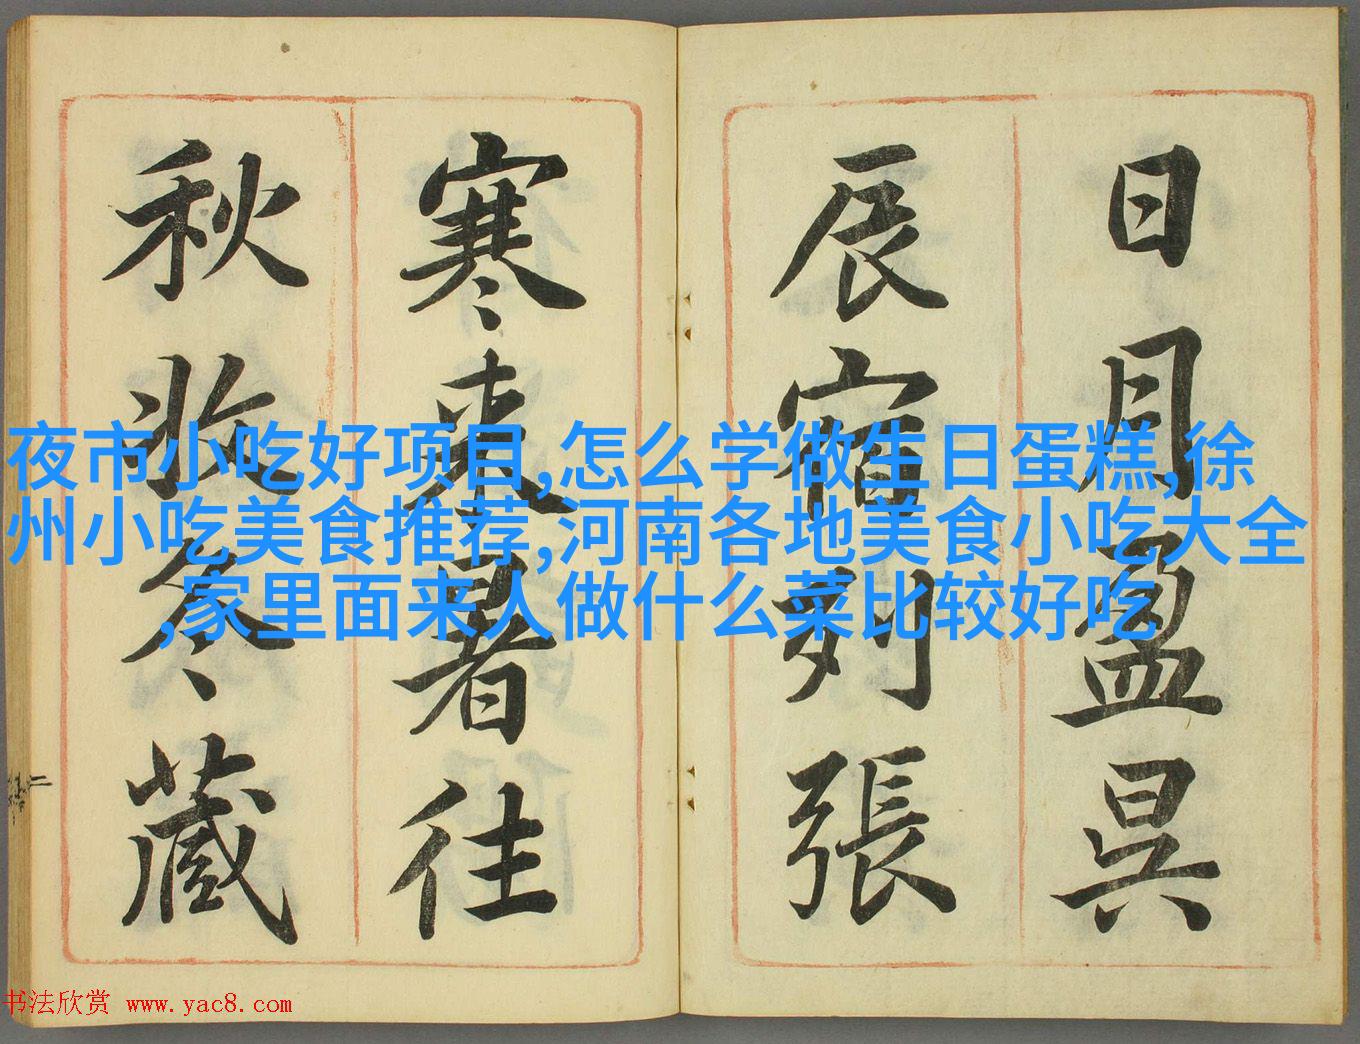 日月盈昃
辰宿列張
寒来暑往
秋收冬藏
夜市小吃好项目,怎么学做生日蛋糕,徐
州小吃美食推荐,河南各地美食小吃大全
,家里面来人做什么菜比较好吃
二
书法欣赏 www.yac8.com